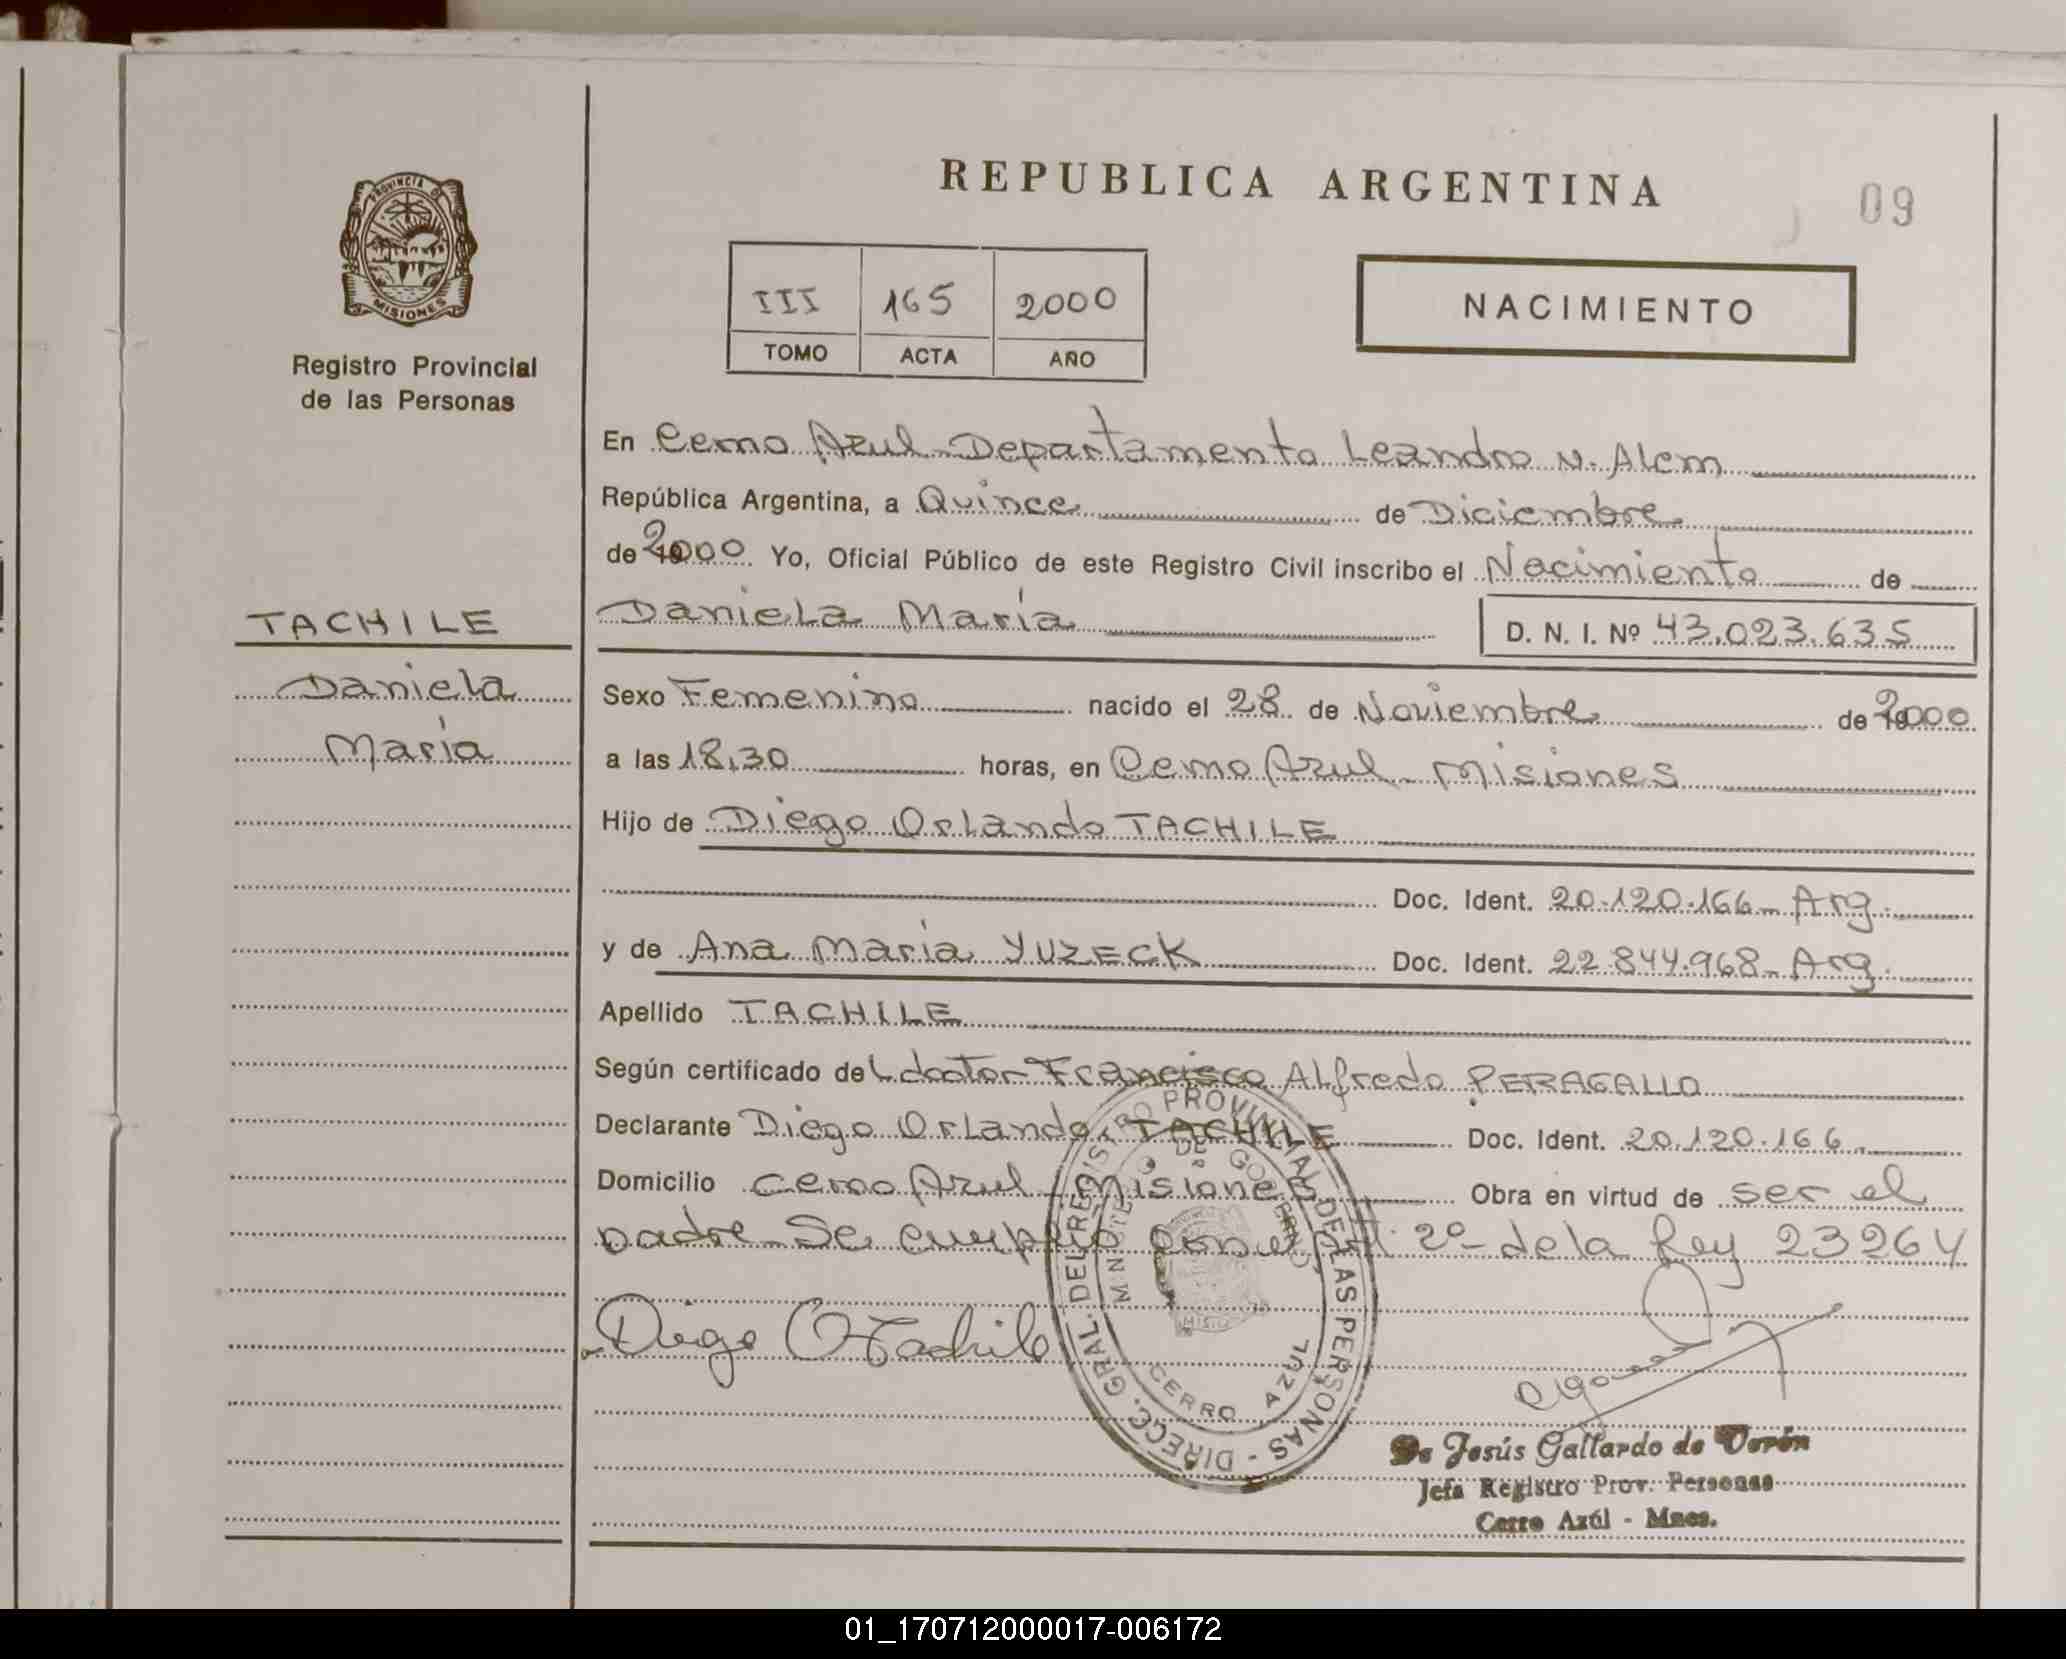 REPUBLICA ARGENTINA
09
PROVINCIA DE
MISIONES
Registro Provincial
de las Personas
III 165 2000
TOMO ACTA AÑO
NACIMIENTO
En Cerro Azul - Departamento Leandro N. Alem
República Argentina, a Quince de Diciembre
de 2000 Yo, Oficial Público de este Registro Civil inscribo el Nacimiento de
Daniela María D. N. I. Nº 43.023.635
TACHILE
Daniela
María
Sexo Femenino nacido el 28 de Noviembre de 2000
a las 18,30 horas, en Cerro Azul - Misiones
Hijo de Diego Orlando TACHILE
Doc. Ident. 20.120.166 - Arg.
y de Ana María YUZECK Doc. Ident. 22.844.968 - Arg.
Apellido TACHILE
Según certificado del doctor Francisco Alfredo PERAGALLO
Declarante Diego Orlando TACHILE Doc. Ident. 20.120.166
Domicilio Cerro Azul - Misiones Obra en virtud de ser el
padre - Se cumplió con el Art. 2º de la Ley 23264
Diego O Tachile
DIRECC. GRAL. DEL REGISTRO PROVINCIAL DE LAS PERSONAS -
MINISTERIO DE GOBIERNO
CERRO AZUL
De Jesús Gallardo de Verón
Jefa Registro Prov. Personas
Cerro Azúl - Mnes.
01_170712000017-006172